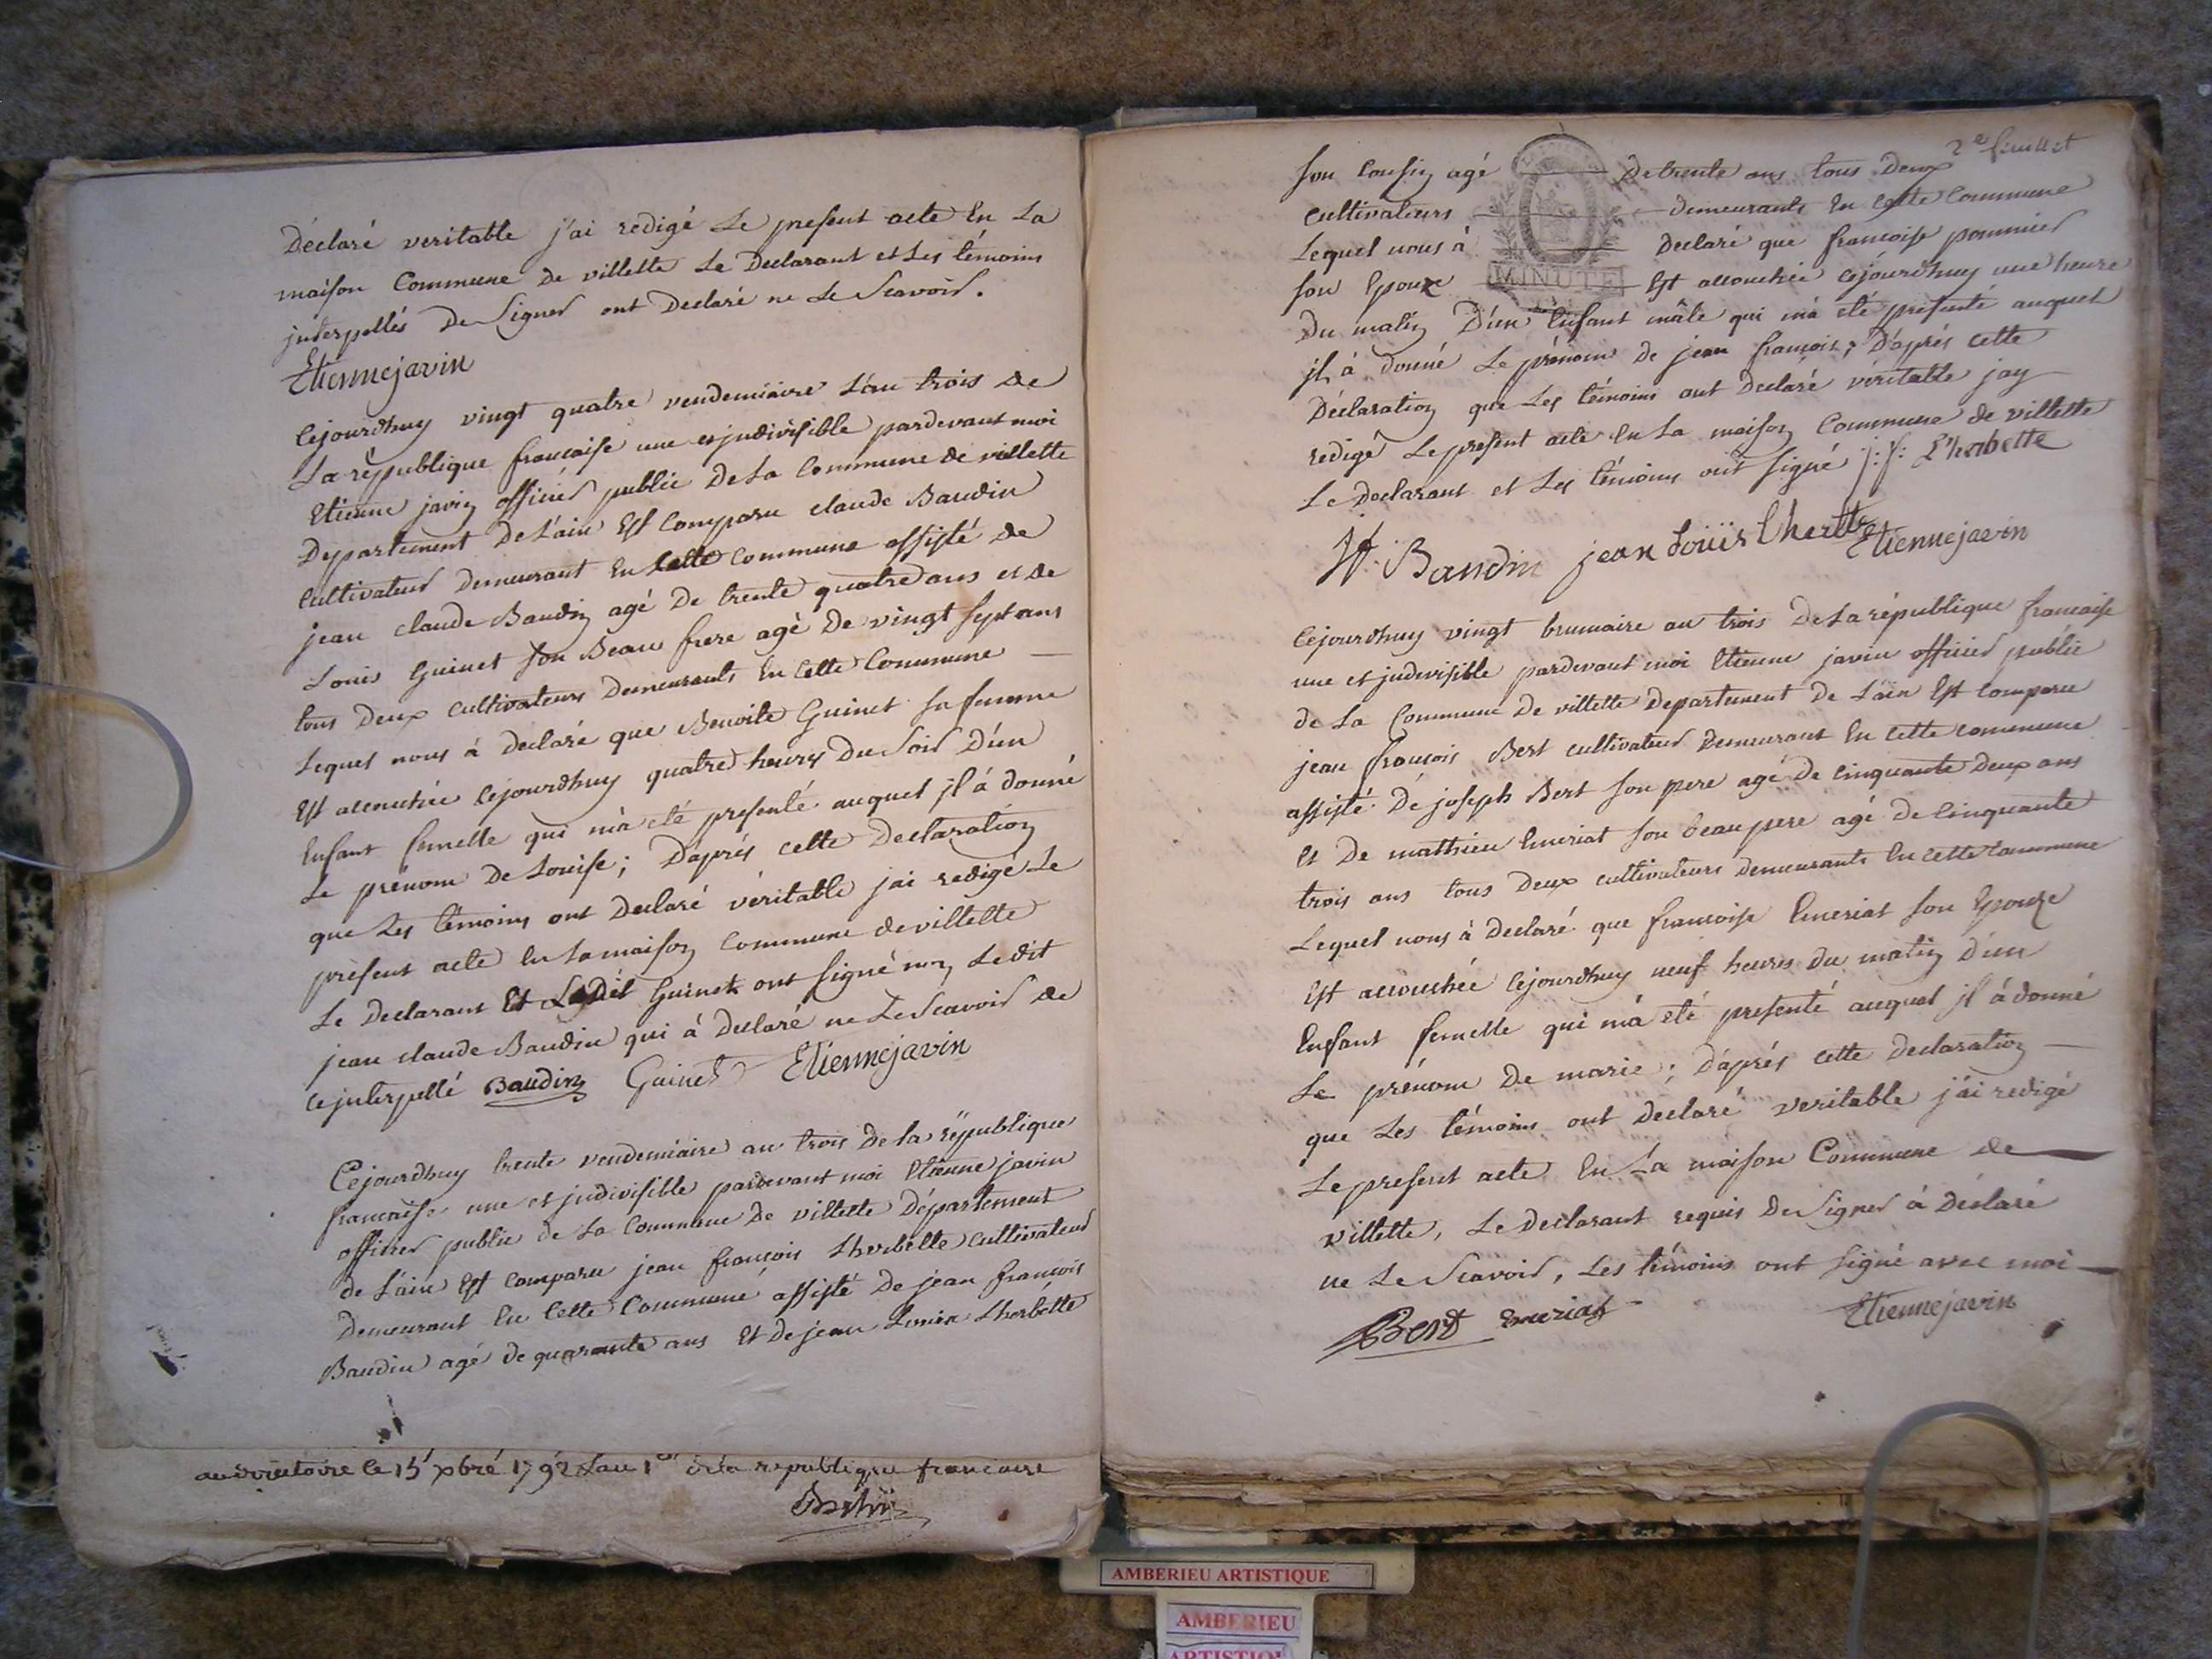 Déclaré veritable j'ai redigé Le present acte En La
maison Commune de villette Le Declarant et Les témoins
jnterpellés De Signer ont Declaré ne Le Scavoir.
Etiennejavin
Cejourdhuy vingt quatre vendemiaire L'an trois de
La république francaise une et jndivisible pardevant moi
Etienne javin officier public De La Commune de villette
Departement De L'ain Est Comparu claude Baudin
Cultivateur Demeurant En Cette commune assisté de
jean claude Baudin agé De trente quatre ans et de
Louis Guinet son Beau frere agé De vingt sept ans
tous Deux cultivateurs Demeurants En Cette Commune
Lequel nous à Declaré que Benoite Guinet sa femme
Est accouchée Cejourdhuy quatre heures Du Soir D'un
Enfant femelle qui m'a eté presenté auquel jl à donné
Le prénom De Louise; D'aprés cette Declaration
que Les témoins ont Declaré véritable j'ai redigé Le
présent acte En La maison Commune de villette
Le Declarant Et Ledit Guinet ont signé non Ledit
jean claude Baudin qui à Declaré ne Le Scavoir de
ce jnterpellé Baudin Guinet Etiennejavin
Cejourdhuy trente vendemiaire an trois De la république
francaise une et jndivisible pardevant moi Etienne javin
officier public de La Commune De villette Département
de L'ain Est comparu jean francois Lherbette cultivateur
Demeurant En Cette Commune assisté De jean francois
Baudin agé de quarante ans Et De jean Louis Lherbette
au directoire le 15 xbre 1792 L'an 1er de la republique francaise
2e feuillet
son Cousin agé De trente ans tous Deux
cultivateurs Demeurants En Cette Commune
Lequel nous à Declaré que francoise pommier
son Epouze Est accouchée cejourdhuy une heure
Du matin D'un Enfant mâle qui m'a eté présenté auquel
jl à donné Le prénom De jean francois; D'aprés cette
Déclaration que Les témoins ont Declaré véritable jay
redigé Le present acte En La maison Commune de villette
Le Declarant et Les témoins ont signé j: f: L'herbette
Baudin jean Louis Etiennejavin
MINUTE
Cejourdhuy vingt brumaire an trois De La république francaise
une et jndivisible pardevant moi Etienne javin officier public
de La Commune De villette Departement de L'ain Est comparu
jean francois Bert cultivateur Demeurant En cette commune
assisté De joseph Bert son pere agé De Cinquante Deux ans
Et De mathieu Emeriat son beau pere agé de Cinquante
trois ans tous Deux cultivateurs demeurants En cette Commune
Lequel nous à Declaré que francoise Emeriat son Epouze
Est accouchée Cejourdhuy neuf heures du matin D'un
Enfant femelle qui m'a eté presenté auquel jl à donné
Le prénom De marie; D'aprés cette Declaration
que Les témoins ont Declaré veritable j'ai redigé
Le present acte En La maison Commune de
villette, Le Declarant requis De Signer à Declaré
ne Le Scavoir, Les témoins ont signé avec moi
Bert Emeriat Etiennejavin
AMBERIEU ARTISTIQUE
AMBERIEU
ARTISTIQUE